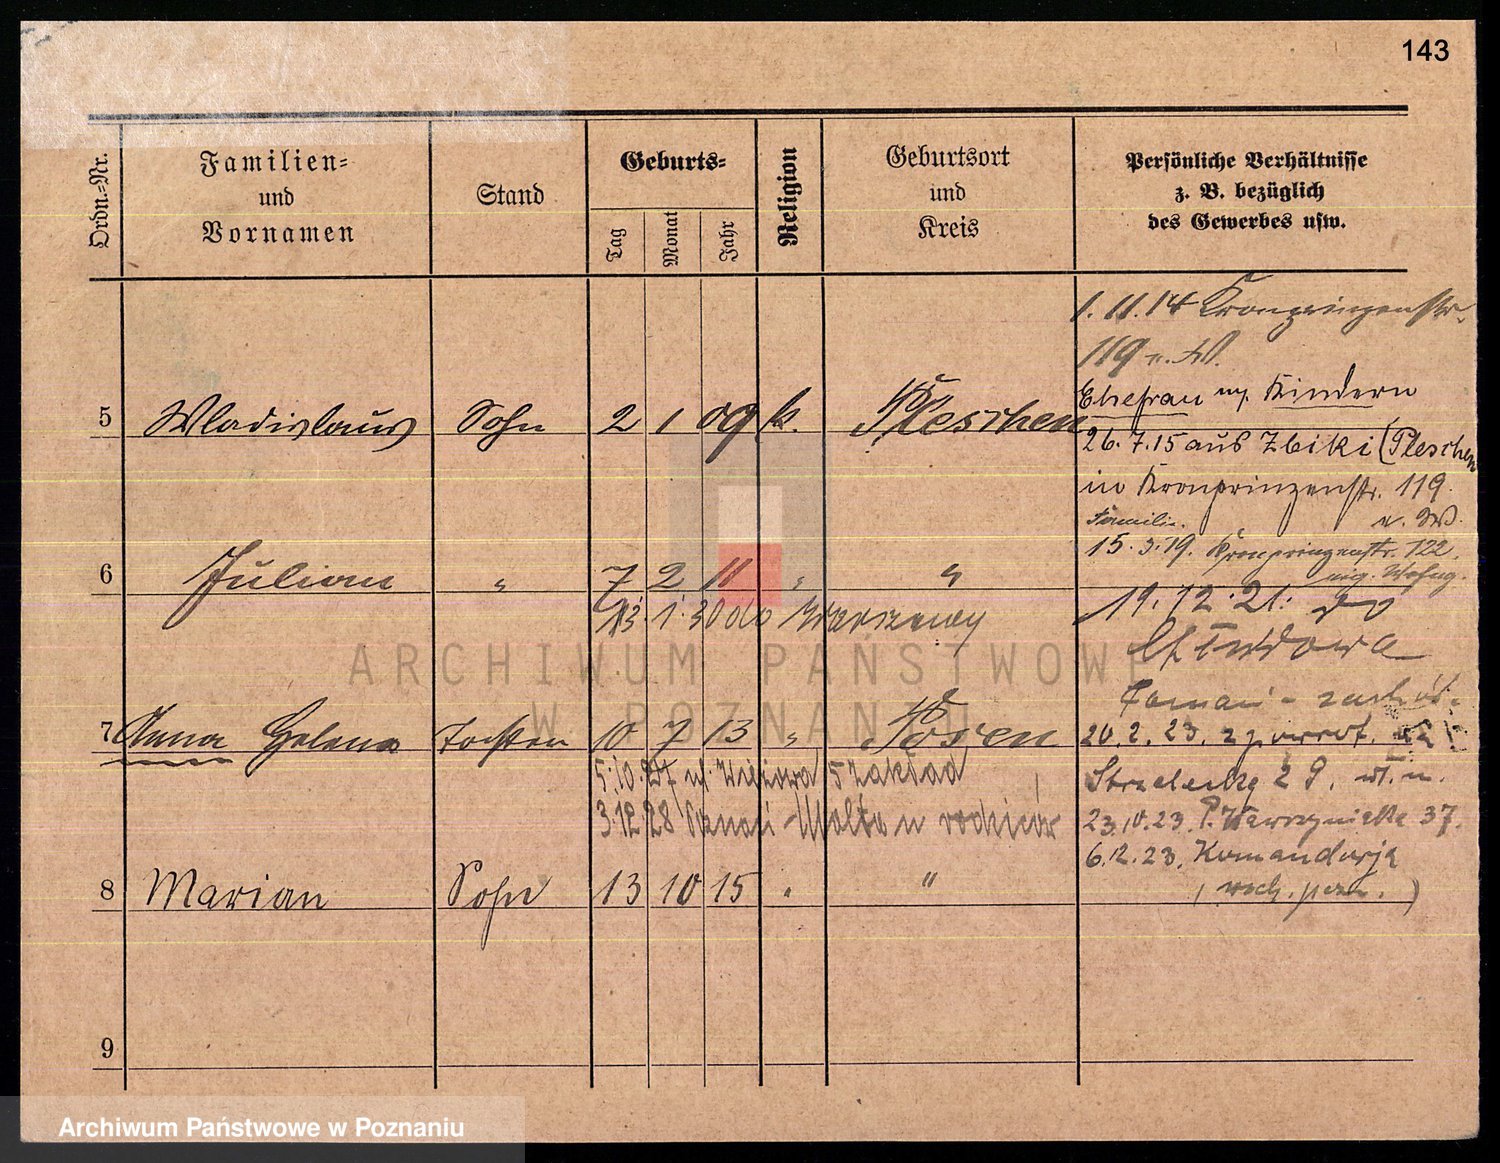 143
Ordn.=Nr.
Familien=
und
Vornamen
Stand
Geburts=
Tag
Monat
Jahr
Religion
Geburtsort
und
Kreis
Persönliche Verhältnisse
z. B. bezüglich
des Gewerbes usw.
1. 11. 14 Kronprinzenstr.
119 v. W.
Ehefrau Kindern
5 Wladislaus Sohn 2 1 09 k. Pleschen
26. 7. 15 aus Zbiki (Pleschen
in Kronprinzenstr. 119.
Familie.
15. 3. 19. Kronprinzenstr. 122.
eig. Wohng.
6 Julian " 7 2 11 " "
13. 1. 30 do Warszawy
19. 12. 21.
7 Anna Helena Tochter 10 7 13 " Posen
20. 2. 23. z powrot.
5. 10. 27 ul. Wieżowa 5 zakład
Strzelecka 29.
3. 12. 28 Poznań - Malta u rodziców
23. 10. 23. 37.
6. 12. 23. Komandorja
8 Marian Sohn 13 10 15 " "
9
ARCHIWUM PAŃSTWOWE
W POZNANIU
Archiwum Państwowe w Poznaniu